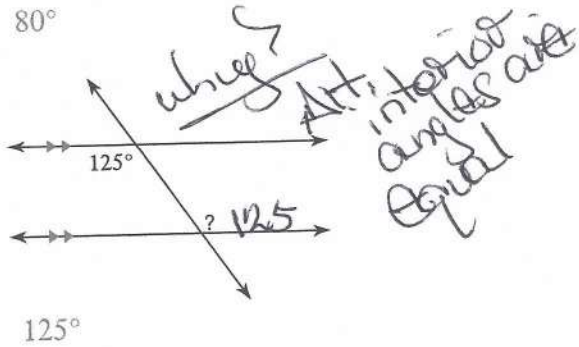 80°
why?
Alt.
interior
angles are
equal
125°
? 125
125°